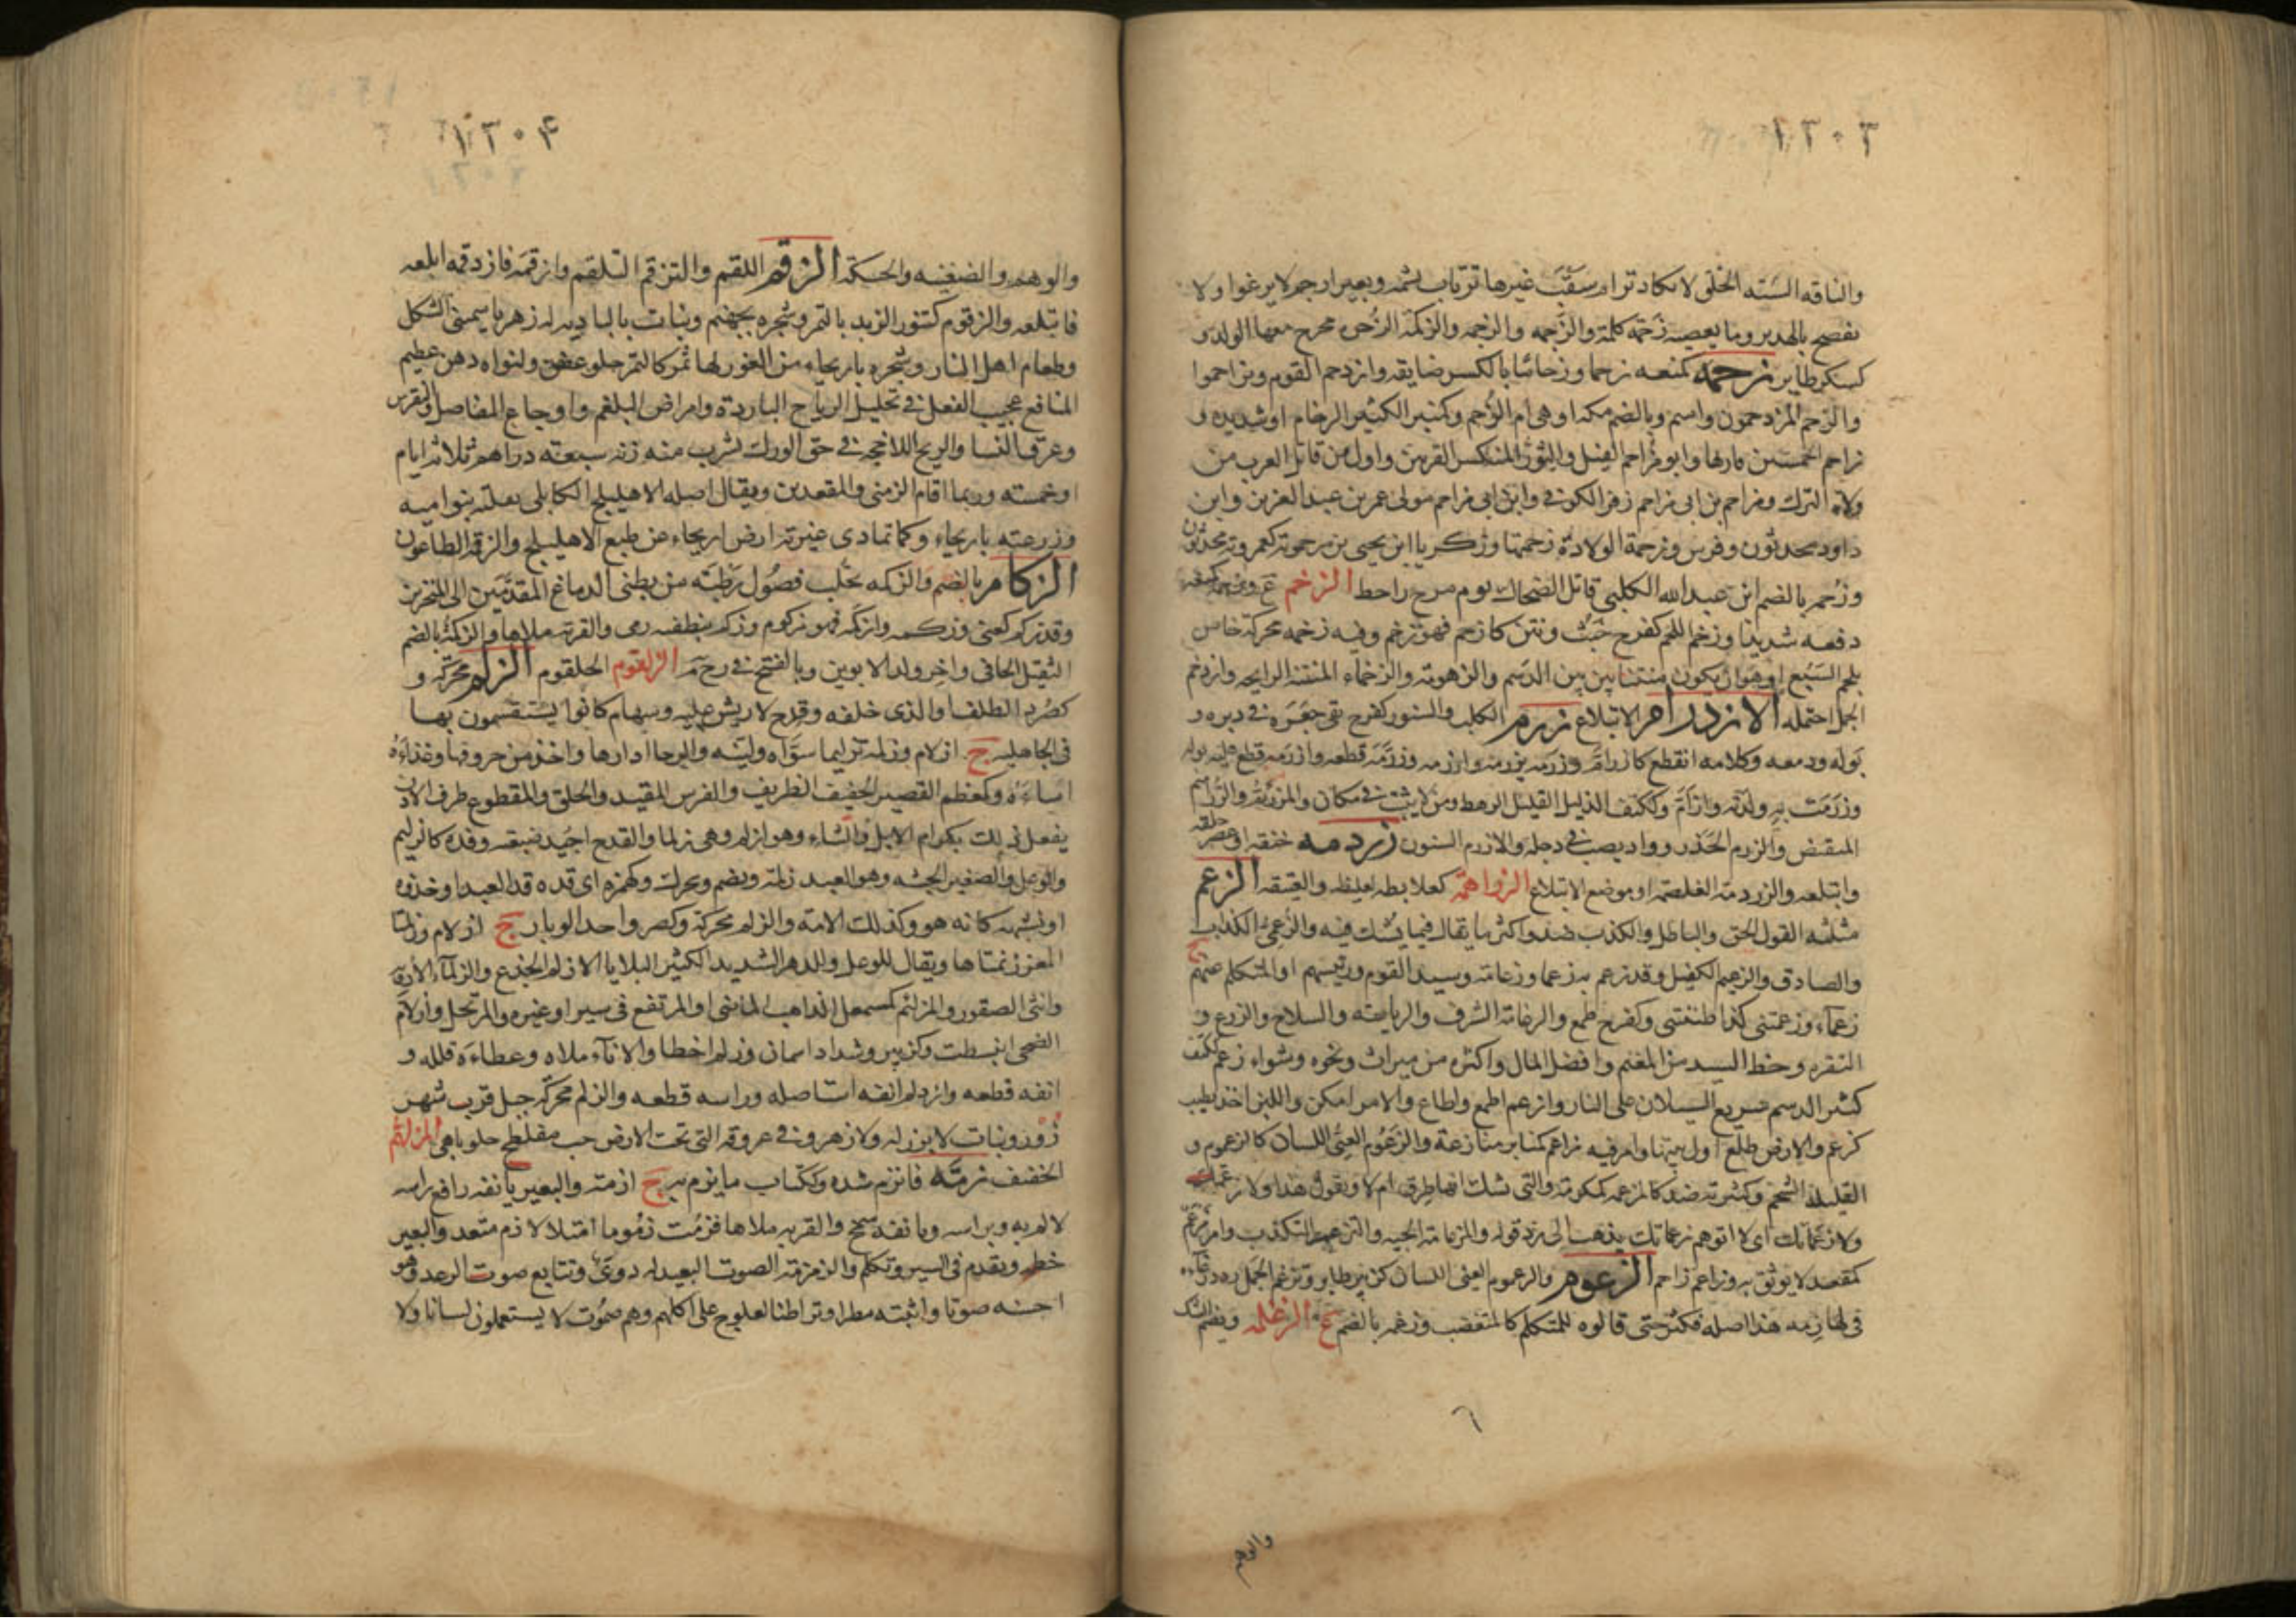 ١٢٠٣
والناقه السيّئه الخلق لا تكاد ترام سقب غيرها ترتاب بشمه وبعير ارجم لا يرغوا ولا
يفصح بالهدير وما يعصيه زجمة كلمة والزجمه والزجمه والزكمة الزحره يخرج معها الولد و
كسكر طاير زحمه كمنعه زحما وزحاما بالكسر ضايقه وازدحم القوم وتزاحموا
والزحم المزدحمون واسم وبالضم مكه او هى ام الزحم وكمنبر الكثير الزحام او شديده و
زاحم الخمسين قاربها وابو مزاحم الفيل والثور المنكسر القرنين واول من قاتل العرب من
ولاة الترك ومزاحم بن ابى مزاحم زفر الكوفى وابن ابى مزاحم مولى عمر بن عبد العزيز وابن
داود محدثون وفرس وزحمة الولادة زحمتها وزكريا ابن يحيى بن زحمويه كعمرويه محدثون
وزحم بالضم ابن عبد الله الكلبى قاتل الضحاك يوم مرج راهط الزخم ع وزخمه كمنعه
دفعه شديدا وزخم اللحم كفرح خبث ونتن كازخم فهو زخم وفيه زخمه محركة خاص
بلحم السبع او هو ان يكون منتنا بين الدسم والزهومة والزخماء المنتنة الرايحه وازدخم
الحمل احتمله الازدرام الابتلاع زرم الكلب والسنور كفرح بقى جعره فى دبره و
بوله ودمعه وكلامه انقطع كازرأم وزرمه يزرمه وازرمه وزرّمه قطعه وازرمه قطع عليه بوله
وزرمت به ولدته وازرأم وككتف الذليل القليل الرهط ومن لا يثبت فى مكان والمزرئم والزرام
المنقبض والزرم الحذر وواد يصب فى دجله والازرم السنور زردمه خنقه او عصر حلقه
وابتلعه والزردمة الغلصمة او موضع الابتلاع الزواهمة كعلابطه الغليظه والعتيقه الزعم
مثلثه القول الحق والباطل والكذب ضد واكثر ما يقال فيما يشك فيه والزعمىّ الكذاب
والصادق والزعيم الكفيل وقد زعم به زعما وزعامة وسيد القوم ورئيسهم او المتكلم عنهم ج
زعماء وزعمتنى كذا ظننتنى وكفرح طمع والزعامة الشرف والرياسه والسلاح والدرع و
البقره وحظ السيد من المغنم وافضل المال واكثره من ميراث ونحوه وشواء زعم ككتف
كثير الدسم سريع السيلان على النار وازعم اطمع واطاع والامر امكن واللبن اخذ يطيب
كزعم والارض طلع اول نبتها وامر فيه مزاعم كمنابر منازعة والزعوم العيىّ اللسان كالزعموم و
القليلة الشحم وكثيرته ضد كالمزعمه كمكرمة والتى يشك افيها طرق ام لا وتقول هذا ولا زعمتك
ولا زعماتك اى لا اتوهم زعماتك يذهب الى رد قوله والمزعامة الحيه والتزعم التكذب وامر مزعم
كمقعد لا يوثق به وزاعم زاحم الزغوم والزغموم العيى اللسان كزبير طاير وتزغم الجمل ردد رغاءه
فى لهازمه هذا اصله فكثر حتى قالوه للمتكلم كالمتغضب وزغم بالضم ع الزغلمه ويضم الشك
والوهم
١٢٠٤
والوهم والضغينه والحسكة الزقم اللقم والتزقم التلقم وازقمه فازدقمه ابلعه
فابتلعه والزقوم كتنور الزبد بالتمر وشجره بجهنم ونبات بالباديه له زهر ياسمينى الشكل
وطعام اهل النار وشجره باريحاء من الغور لها ثمر كالتمر حلو عفص ولنواه دهن عظيم
المنافع عجيب الفعل فى تحليل الرياح الباردة وامراض البلغم واوجاع المفاصل والنقرس
وعرق النسا والريح اللاحجه فى حق الورك يشرب منه زنه سبعه دراهم ثلاثه ايام
او خمسه وربما اقام الزمنى والمقعدين ويقال اصله الاهليلج الكابلى نقلته بنو اميه
وزرعته باريحاء وكما تمادى غيرته ارض اريحاء عن طبع الاهليلج والزقمه الطاعون
الزكام بالضم والزكمه تحلب فضول رطبه من بطنى الدماغ المقدمين الى المنخرين
وقد زكم كعنى وزكمه وازكمه فهو مزكوم وزكم بنطفه رمى والقربة ملاها والزكمة بالضم
الثقيل الجافى واخر ولد الابوين وبالفتح فى رح م الزلقوم الحلقوم الزلم محركة و
كصرد الظلف او الذى خلفه وقدح لا ريش عليه وسهام كانوا يستقسمون بها
فى الجاهليه ج ازلام وزلمه تزليما سواه ولينه والرحا ادارها واخذ من حروفها وغذاءه
اساءه وكمعظم القصير الخفيف الظريف والفرس المقتدر الخلق والمقطوع طرف الاذن
يفعل ذلك بكرام الابل والشاء وهو ازلم وهى زلما والقدح اجيد صنعته وقده كالزليم
والوعل والصغير الجثه وهو العبد زلمة ويضم ويحرك وكهمزه اى قده قد العبد او حذوه
او يشبهه كانه هو وكذلك الامة والزلم محركة وكصرد واحد الوبار ج ازلام وزلمتا
العنز زنمتاها ويقال للوعل والدهر الشديد الكثير البلايا الازلم الجذع والزلماء الاروية
وانثى الصقور والمزلئم كمسمعل الذاهب الماضى او المرتفع فى سير او غيره والمرتحل وازلام
الضحى انبسطت وكزبير وشداد اسمان وزلم اخطا والاناء ملاه وعطاءه قلله و
انفه قطعه وازدلم انفه استاصله وراسه قطعه والزلم محركة جبل قرب شهر
زور ونبات لا بزر له ولا زهر وفى عروقه التى تحت الارض حب مفلطح حلو باهى المزلهم
الخفيف زمّه فانزم شده وككتاب ما يزم به ج ازمة والبعير بانفه رفع راسه
لالم به وبراسه وبانفه شمخ والقربه ملاها فزمت زموما امتلا لازم متعد والبعير
خطم وتقدم فى السير وتكلم والزمزمة الصوت البعيد له دوىّ وتتابع صوت الرعد وهو
احسنه صوتا واثبته مطرا وتراطن العلوج على اكلهم وهم صموت لا يستعملون لسانا ولا